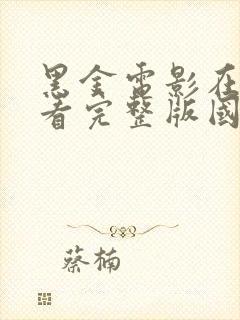 黑金電影在
看完整版國
蔡楠